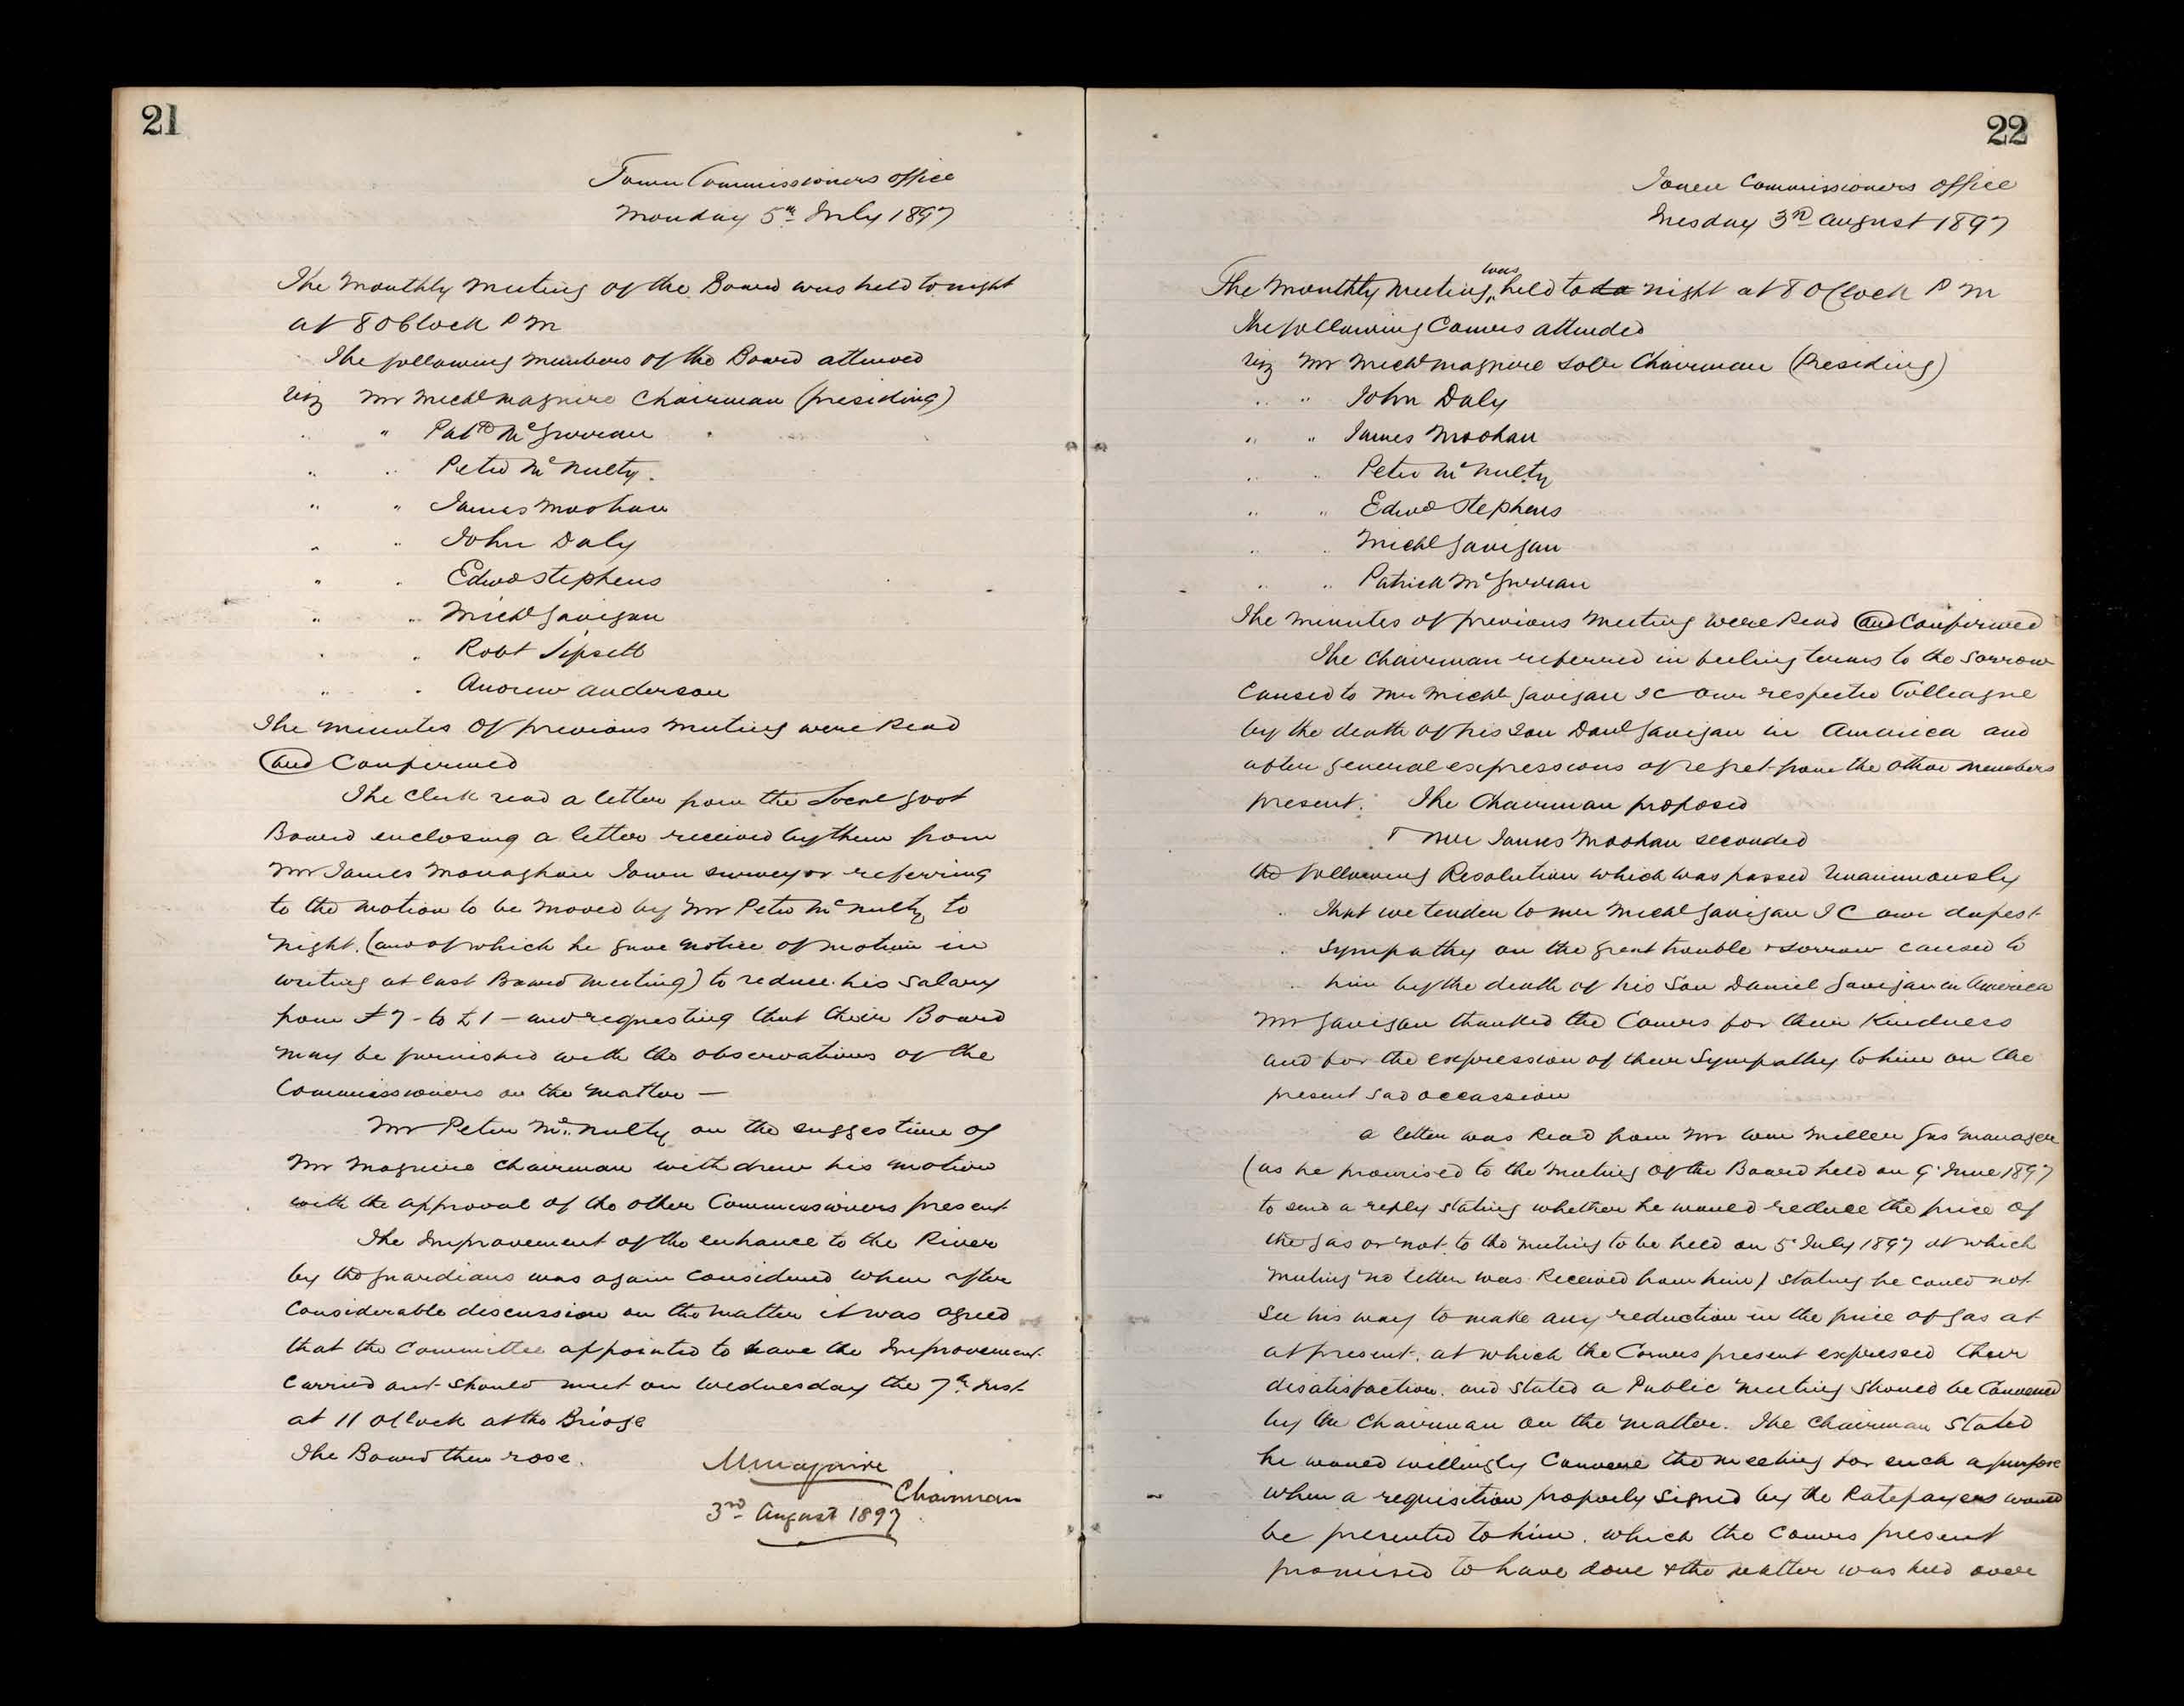 21
Town Commissioners office
Monday 5th July 1897
The Monthly Meeting of the Board was held tonight
at 8 OClock P M
The following Members of the Board attended
Viz Mr Michl Maguire Chairman (presiding)
" " Patk McGurran
" " Peter McNulty.
" " James Moohan
" " John Daly
" " Edwd Stephens
" " Michl Gavigan
" " Robt Lipsett
" " Andrew Anderson
The Minutes Of previous Meeting were Read
and Confirmed
The Clerk read a letter from the Local Govt
Board enclosing a letter received by them from
Mr James Monaghan Town Surveyor referring
to the Motion to be Moved by Mr Peter McNulty to
night. (and of which he gave Notice of Motion in
writing at last Board Meeting) to reduce his Salary
from £7 - to £1 - and requesting that their Board
may be furnished with the observations of the
Commissioners on the Matter —
Mr Peter McNulty on the suggestion of
Mr Maguire Chairman withdrew his Motion
with the approval of the other Commissioners present
The Improvement of the entrance to the River
by the Guardians was again Considered when after
Considerable discussion on the Matter it was agreed
that the Committee appointed to have the Improvement
Carried out should meet on Wednesday the 7th Inst
at 11 OClock at the Bridge
The Board then rose.
MMaguire
Chairman
3rd August 1897
22
Town Commissioners office
Tuesday 3rd August 1897
The Monthly Meeting was held to da night at 8 OClock P M
The following Comrs attended
Viz Mr Michl Maguire Solr Chairman (Presiding)
" " John Daly
" " James Moohan
" " Peter McNulty
" " Edwd Stephens
" " Michl Gavigan
" " Patrick McGurran
The Minutes of previous Meeting were Read and Confirmed
The Chairman referred in feeling terms to the Sorrow
Caused to Mr Michl Gavigan T C our respected Colleague
by the death of his Son Danl Gavigan in America and
after general expressions of regret from the other Members
present. The Chairman proposed
Mr James Moohan seconded
the following Resolution which was passed Unanimously
That we tender to Mr Michl Gavigan T C our deepest
Sympathy on the great trouble & sorrow caused to
him by the death of his Son Daniel Gavigan in America
Mr Gavigan thanked the Comrs for their Kindness
and for the expression of their Sympathy to him on the
present sad occassion
A letter was Read from Mr Wm Miller Gas Manager
(as he promised to the Meeting Of the Board held on 9 June 1897
to send a reply stating whether he would reduce the price of
the Gas or not to the Meeting to be held on 5 July 1897 at which
Meeting no letter was Received from him) stating he could not
see his way to make any reduction in the price of Gas at
at present. at which the Comrs present expressed their
disatisfaction. and stated a Public Meeting should be Convened
by the Chairman on the Matter. The Chairman Stated
he would willingly Convene the meeting for such a purpose
when a requisition properly Signed by the Ratepayers would
be presented to him. which the Comrs present
promised to have done & the Matter was held over